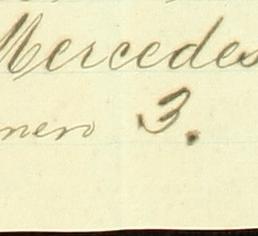 Mercedes
nero 3.